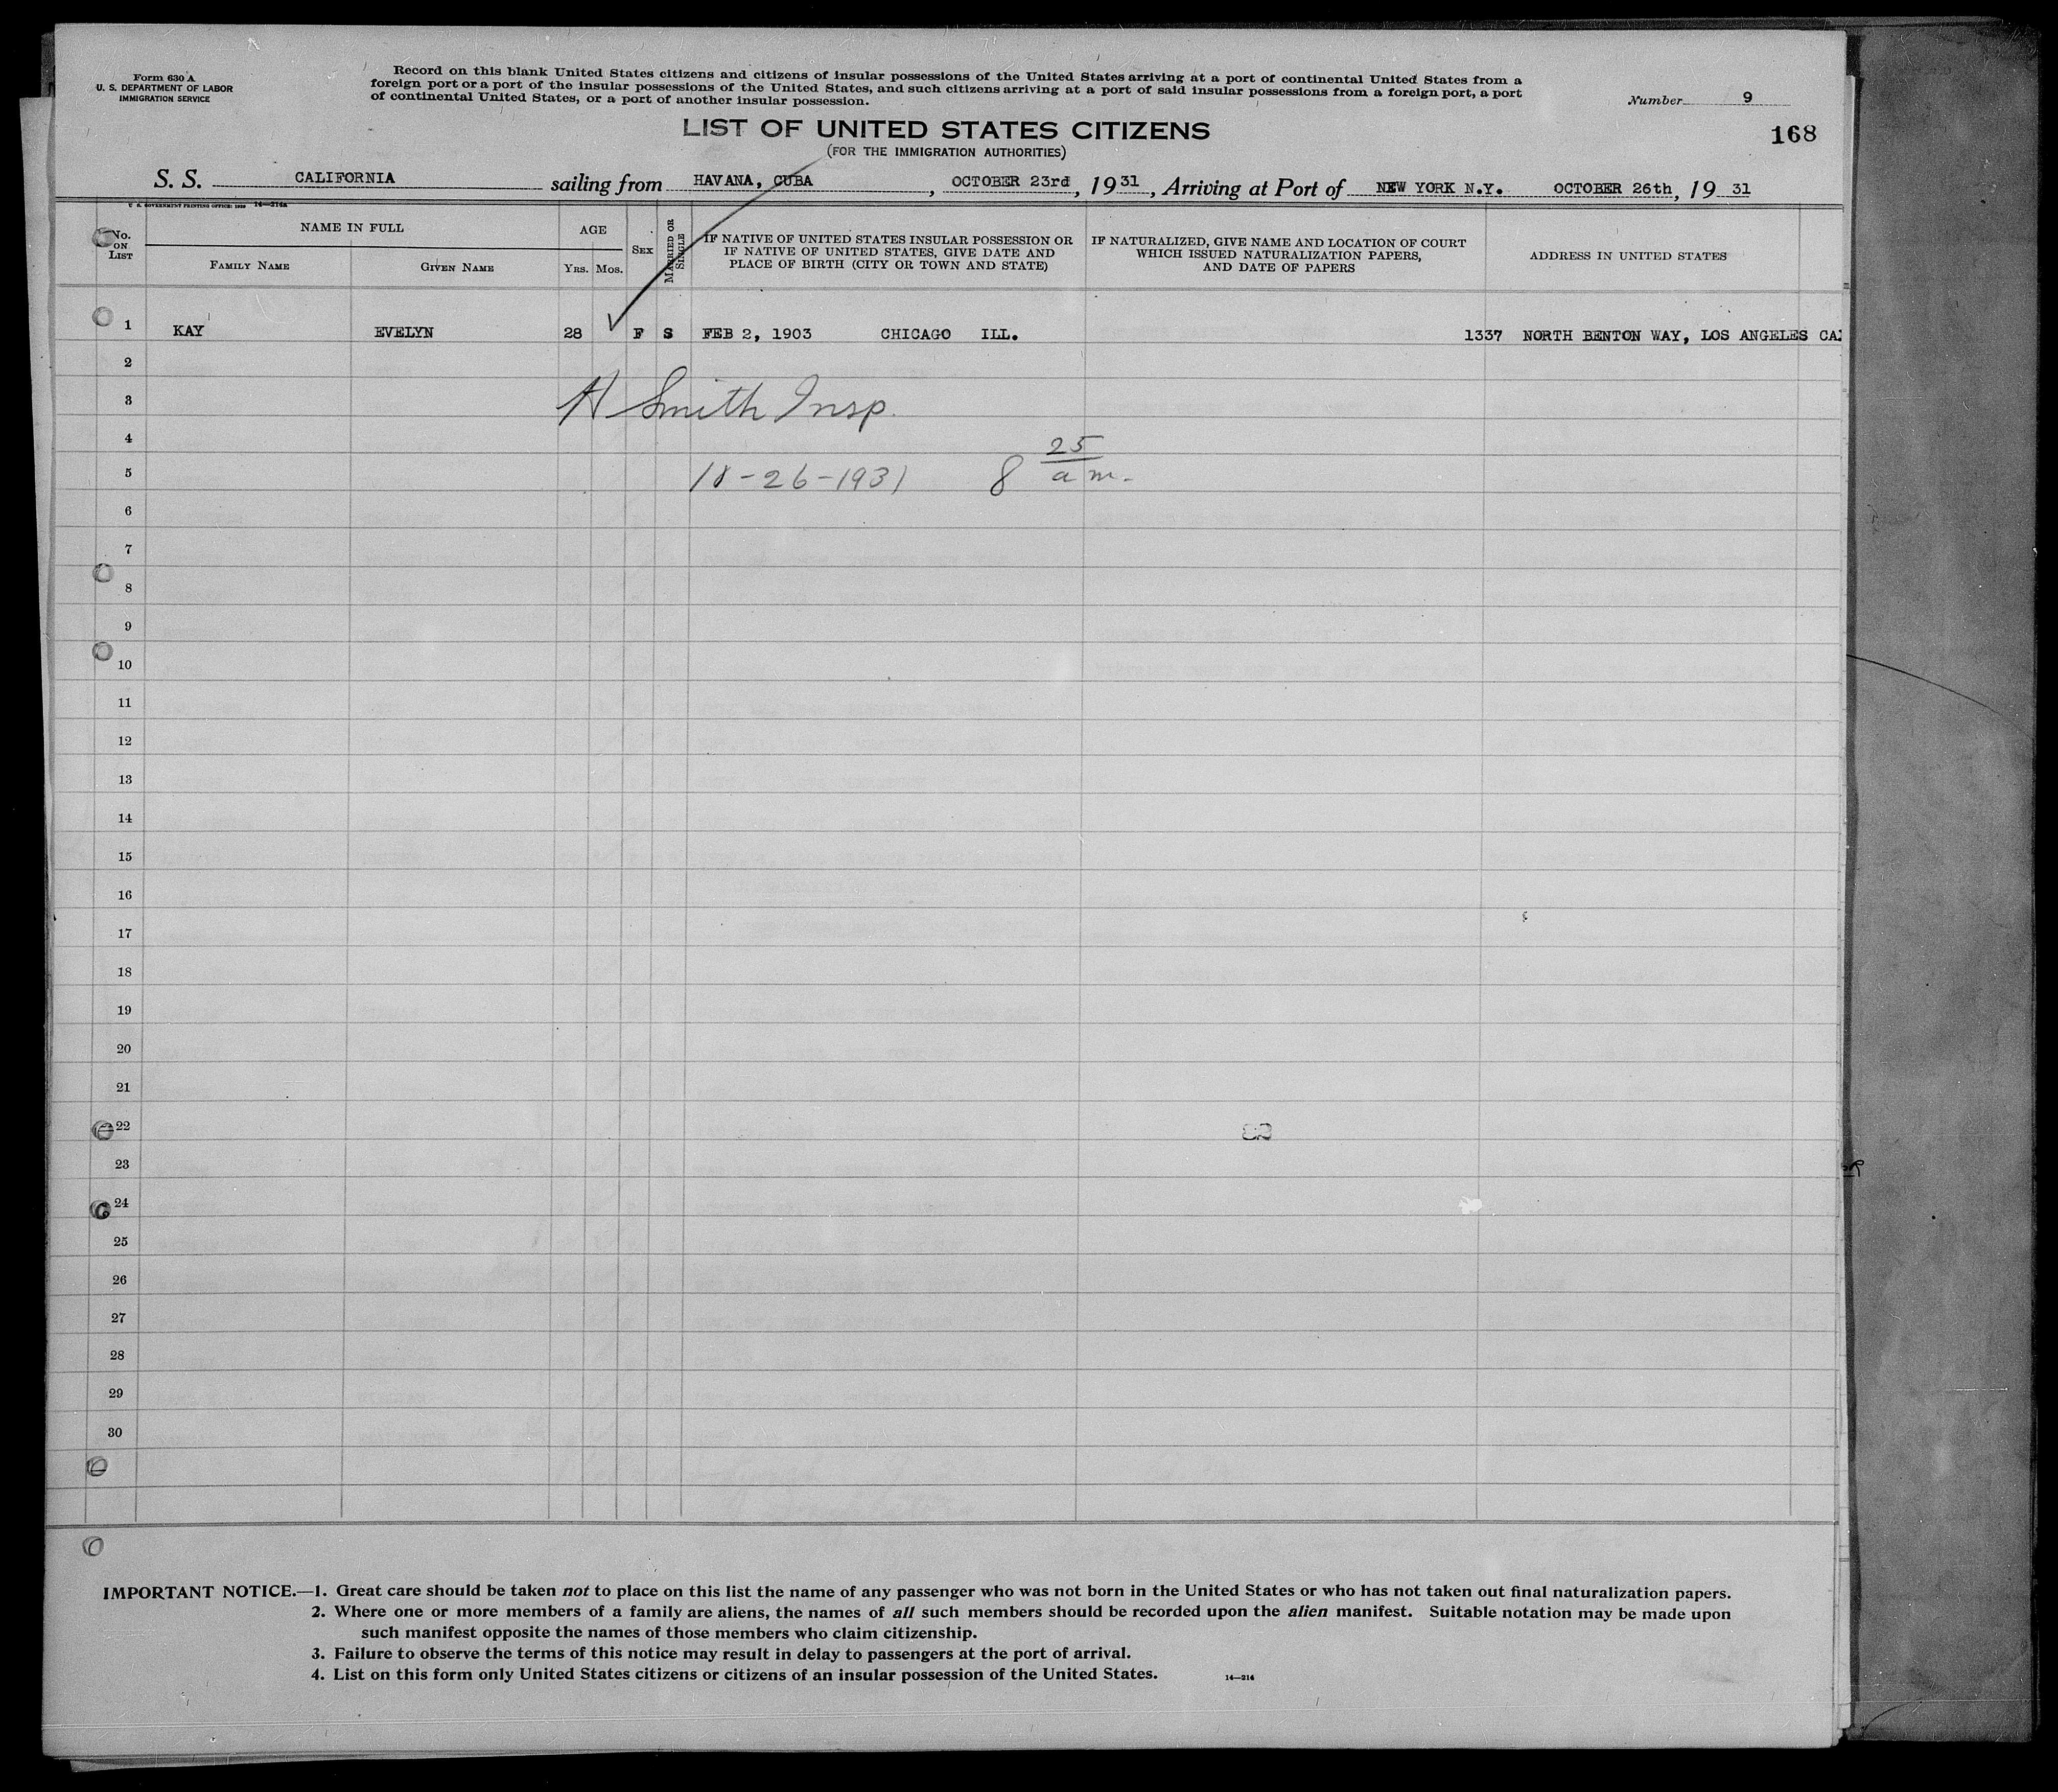 Form 630 A
U. S. DEPARTMENT OF LABOR
IMMIGRATION SERVICE
Record on this blank United States citizens and citizens of insular possessions of the United States arriving at a port of continental United States from a
foreign port or a port of the insular possessions of the United States, and such citizens arriving at a port of said insular possessions from a foreign port, a port
of continental United States, or a port of another insular possession.
Number 9
168
LIST OF UNITED STATES CITIZENS
(FOR THE IMMIGRATION AUTHORITIES)
S. S. CALIFORNIA sailing from HAVANA, CUBA, OCTOBER 23rd, 1931, Arriving at Port of NEW YORK N.Y. OCTOBER 26th, 1931
U. S. GOVERNMENT PRINTING OFFICE: 14—214a
No. ON LIST
NAME IN FULL
FAMILY NAME
GIVEN NAME
AGE
YRS. MOS.
SEX
MARRIED OR SINGLE
IF NATIVE OF UNITED STATES INSULAR POSSESSION OR
IF NATIVE OF UNITED STATES, GIVE DATE AND
PLACE OF BIRTH (CITY OR TOWN AND STATE)
IF NATURALIZED, GIVE NAME AND LOCATION OF COURT
WHICH ISSUED NATURALIZATION PAPERS,
AND DATE OF PAPERS
ADDRESS IN UNITED STATES
1 KAY EVELYN 28 F S FEB 2, 1903 CHICAGO ILL. 1337 NORTH BENTON WAY, LOS ANGELES CAL
2
3 H Smith Insp.
4
5 10-26-1931 8 25 a m.
6
7
8
9
10
11
12
13
14
15
16
17
18
19
20
21
22
23
24
25
26
27
28
29
30
IMPORTANT NOTICE.—1. Great care should be taken not to place on this list the name of any passenger who was not born in the United States or who has not taken out final naturalization papers.
2. Where one or more members of a family are aliens, the names of all such members should be recorded upon the alien manifest. Suitable notation may be made upon
such manifest opposite the names of those members who claim citizenship.
3. Failure to observe the terms of this notice may result in delay to passengers at the port of arrival.
4. List on this form only United States citizens or citizens of an insular possession of the United States.
14—214